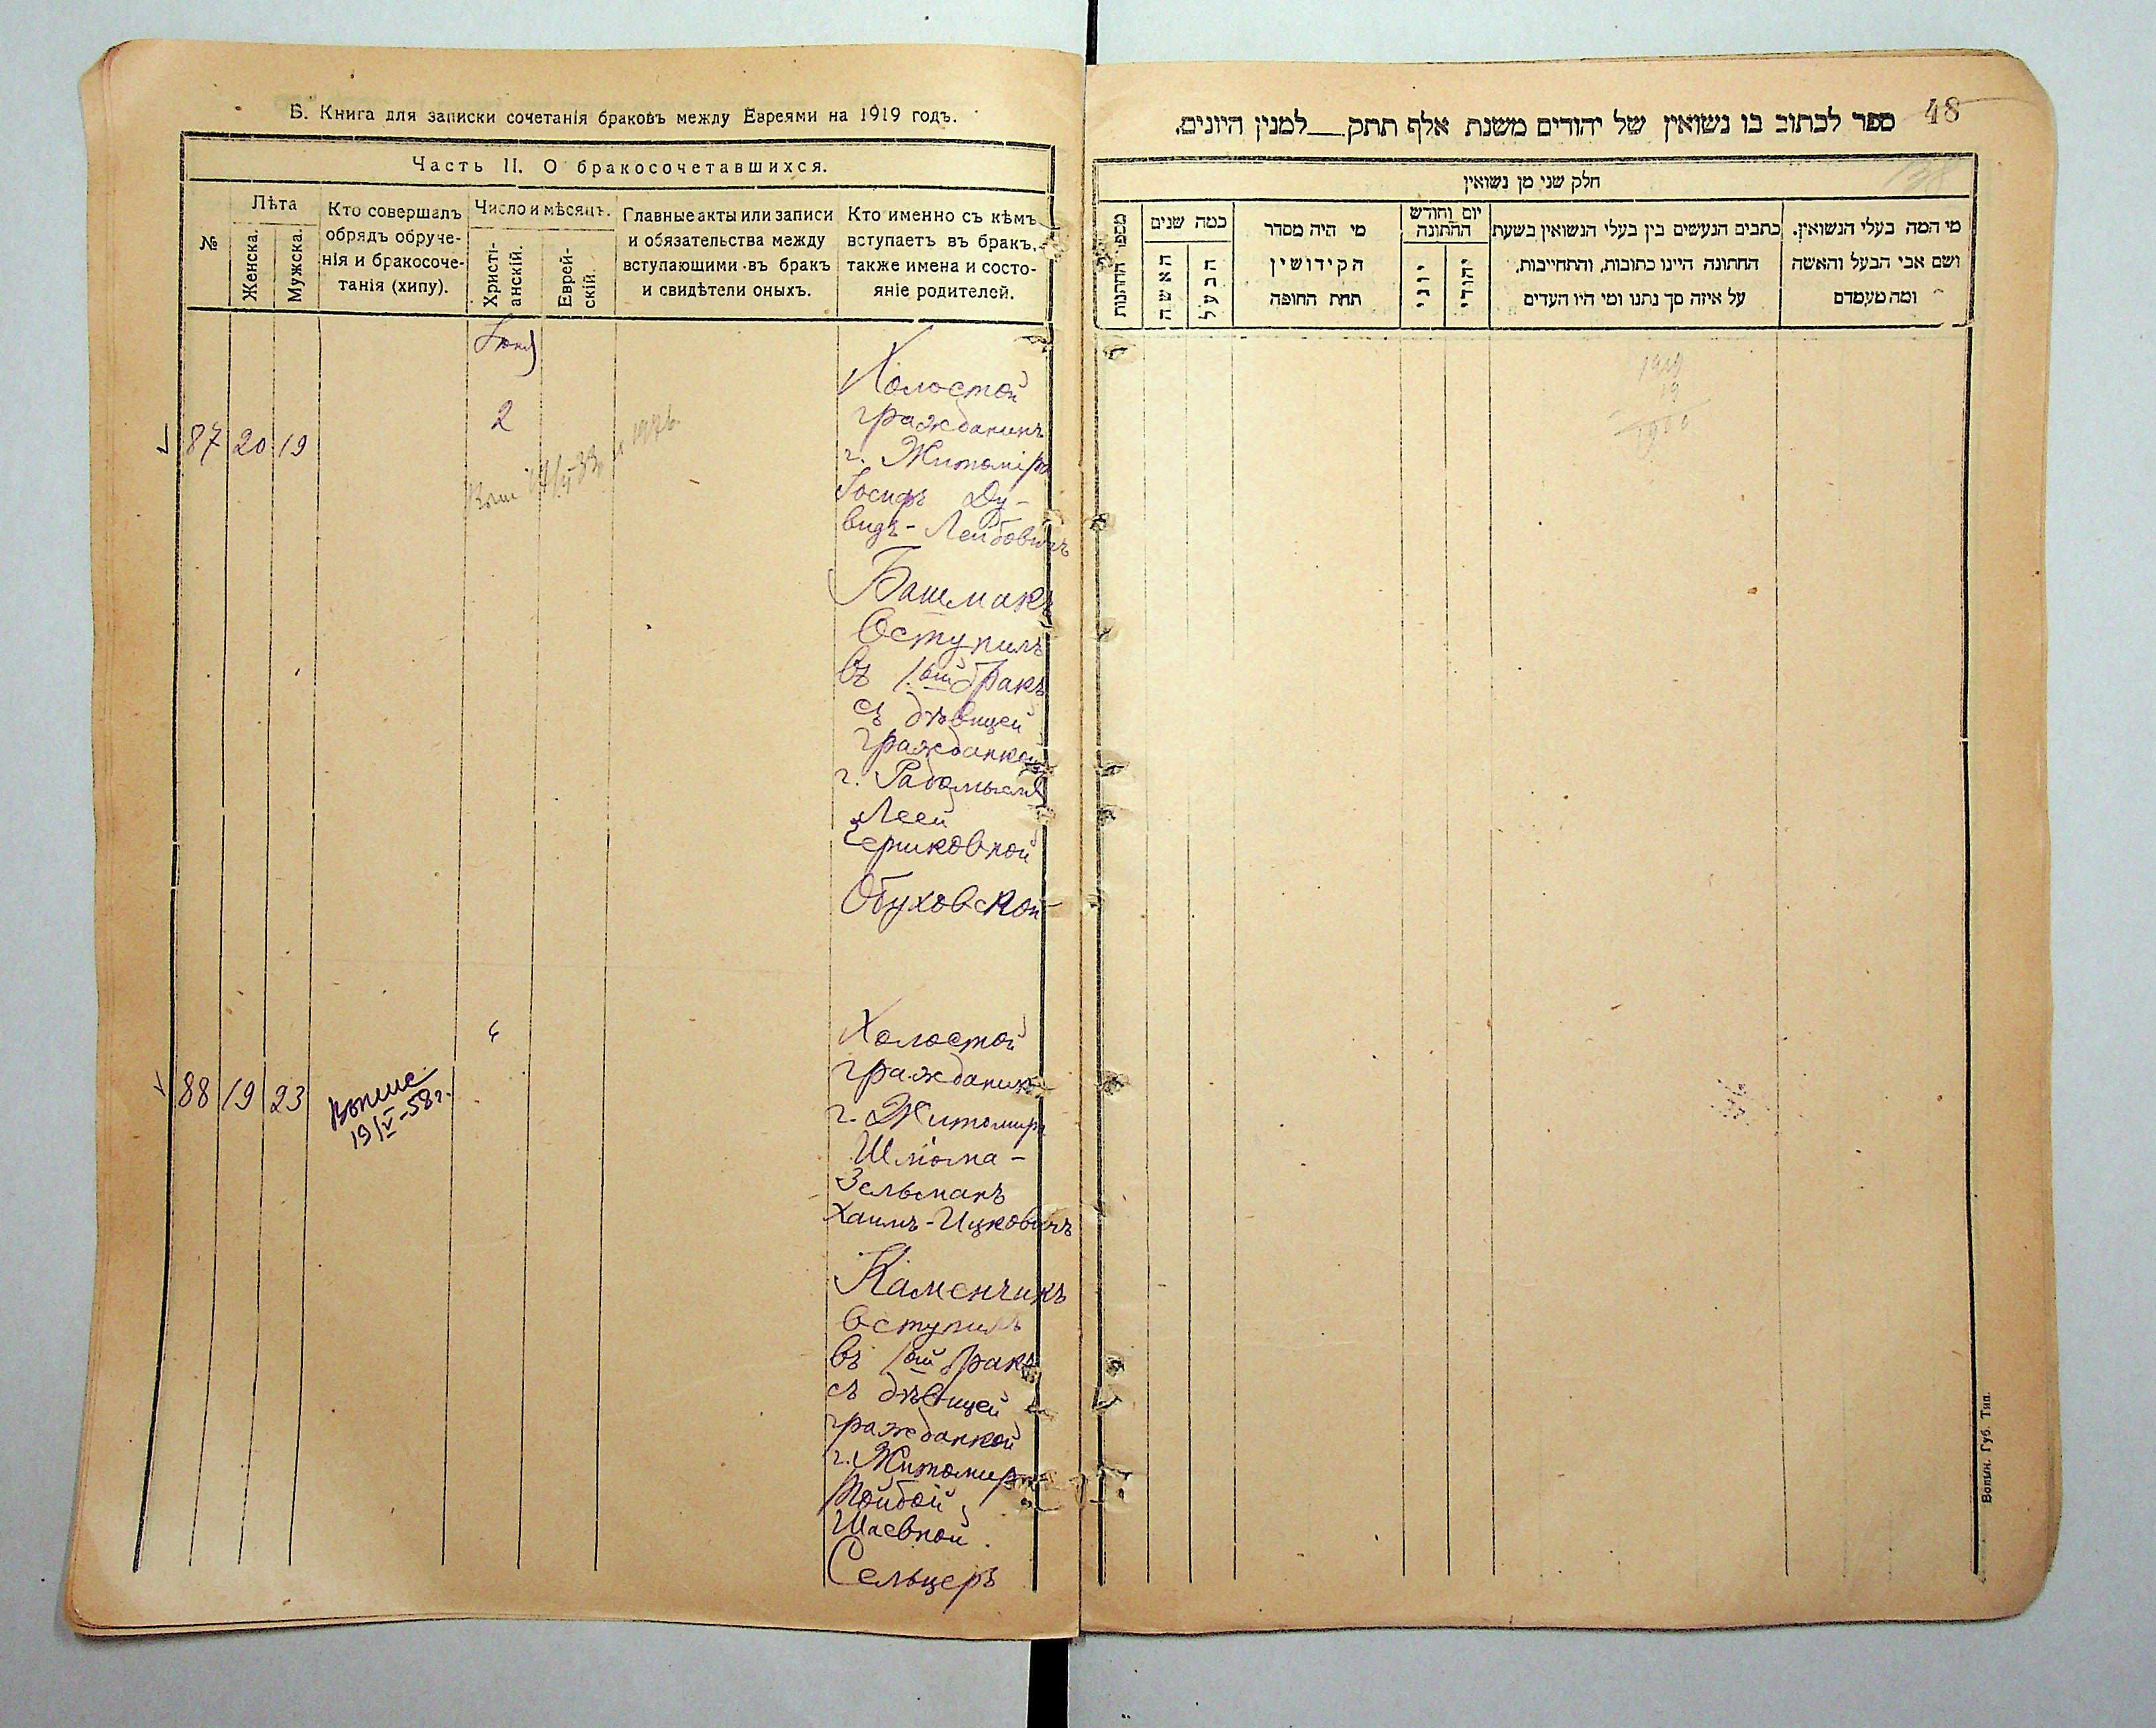 В. Книга для записки сочетанія браковъ между Евреями на 1919 годъ.
Часть II. О бракосочетавшихся.
№
Лѣта
Женска.
Мужска.
Кто совершалъ
обрядъ обруче-
нія и бракосоче-
танія (хипу).
Число и мѣсяцъ.
Христі-
анскій.
Еврей-
скій.
Главные акты или записи
и обязательства между
вступающими въ бракъ
и свидѣтели оныхъ.
Кто именно съ кѣмъ
вступаетъ въ бракъ,
также имена и состо-
яніе родителей.
87 20 19
2
Холостой
гражданинъ
г. Житоміра
Іосифъ Ду-
видъ-Лейбовичъ
Башмакъ
Вступилъ
въ 1ый бракъ
съ дѣвицей
гражданкой
г. Радомысля
Леей
Бериковной
Обуховской
88 19 23
Копие
19/V-58г.
6
Холостой
гражданинъ
г. Житомира
Шлёма-
Зельманъ
Хаимъ-Ицковичъ
Каменчикъ
Вступилъ
въ 1ый бракъ
съ дѣвицей
гражданкой
г. Житомира
Тойбой
Шаевной
Сельцеръ
48
138
ספר לכתוב בו נשואין של יהודים משנת אלף תתק___למנין היונים.
חלק שני מן נשואין
מי המה בעלי הנשואין.
ושם אבי הבעל והאשה
ומה מעמדם
כתבים הנעשים בין בעלי הנשואין בשעת
החתונה היינו כתובות, והתחייבות,
על איזה סך נתנו ומי היו העדים
יום וחודש
החתונה
יהודי
יוני
מי היה מסדר
הקידושין
תחת החופה
כמה שנים
הבעל
האשה
מספר החתונות
1919
19
1900
Волын. Губ. Тип.